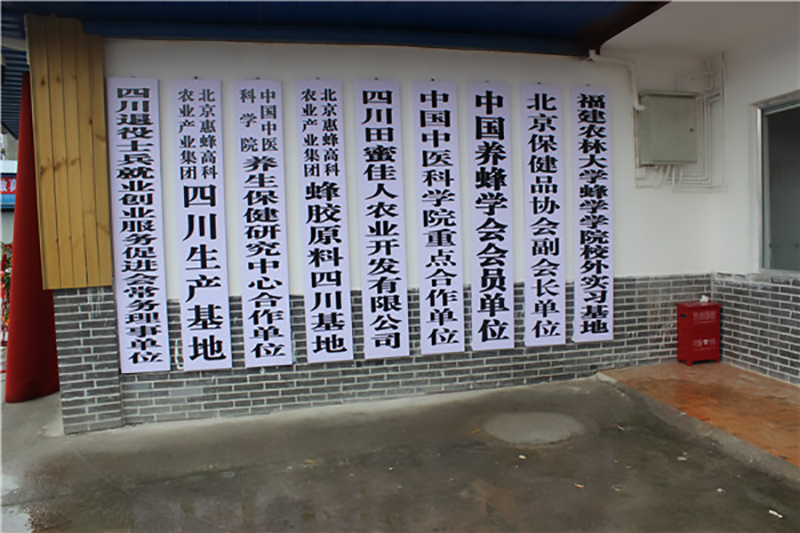 四川退役士兵就业创业服务促进会常务理事单位
北京惠蜂高科
农业产业集团
四川生产基地
中国中医
科学院
养生保健研究中心合作单位
北京惠蜂高科
农业产业集团
蜂胶原料四川基地
四川田蜜佳人农业开发有限公司
中国中医科学院重点合作单位
中国养蜂学会会员单位
北京保健品协会副会长单位
福建农林大学蜂学学院校外实习基地